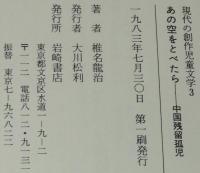 現代の創作児童文学3
あの空をとべたら――中国残留孤児
一九八三年七月三〇日　第一刷発行
著者　椎名龍治
発行者　大川松利
発行所　岩崎書店
東京都文京区水道一-九-二
〒一一二　電話八一二-九一三一
振替　東京七-九六八二二